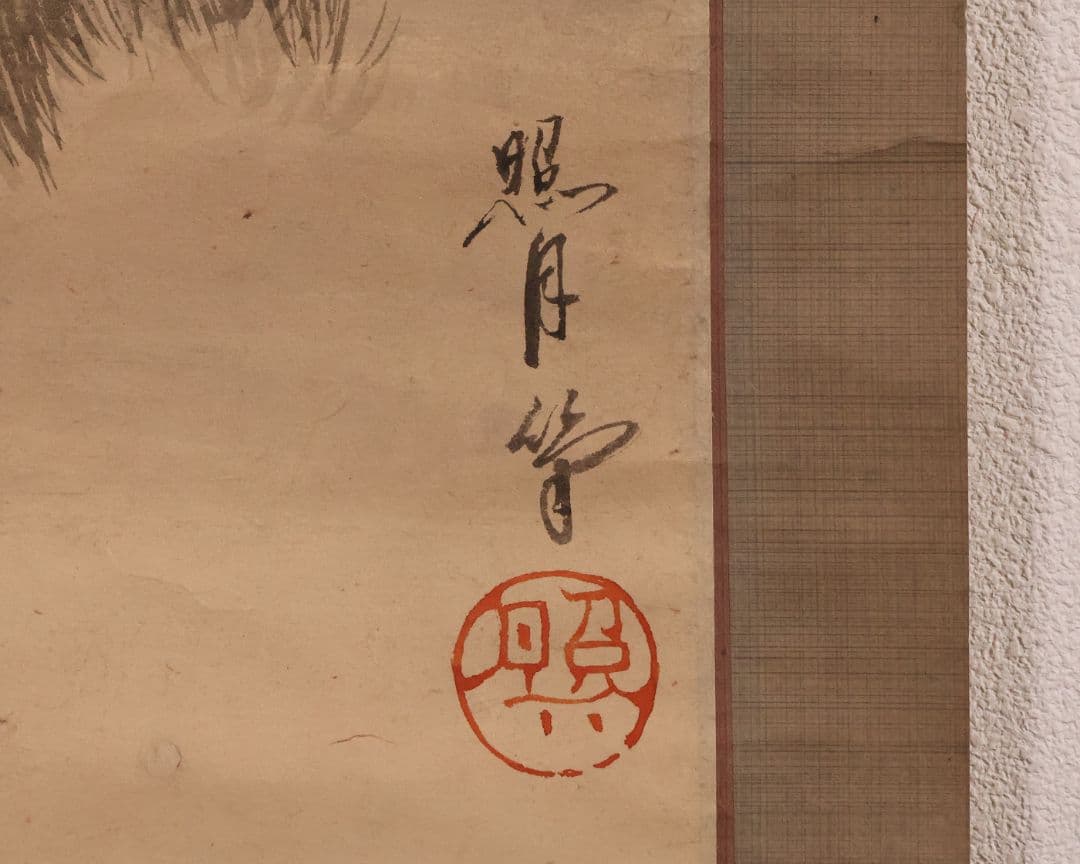 照月筆
照